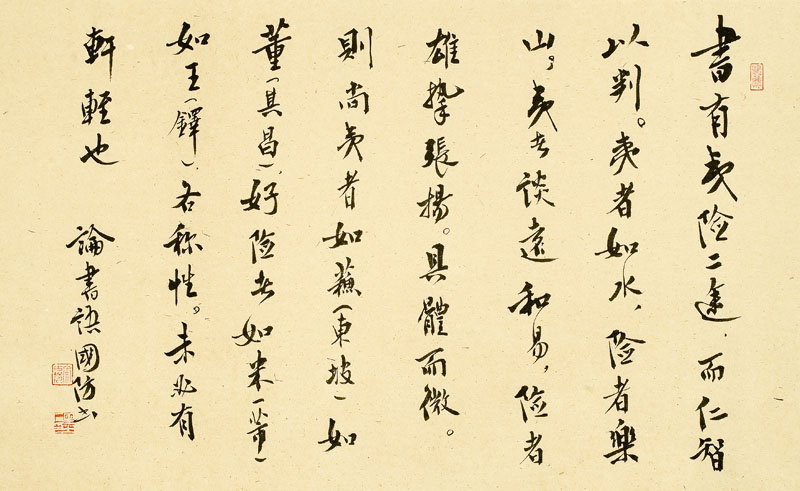 書有夷险二途,而仁智
以判。夷者如水,险者樂
山,夷者談遠和易,险者
雄摯張揚。具體而微。
則尚夷者如蘇(東坡)如
董(其昌),好险者如米(芾)
如王(鐸),各称性。未必有
軒輊也 論書語國防书